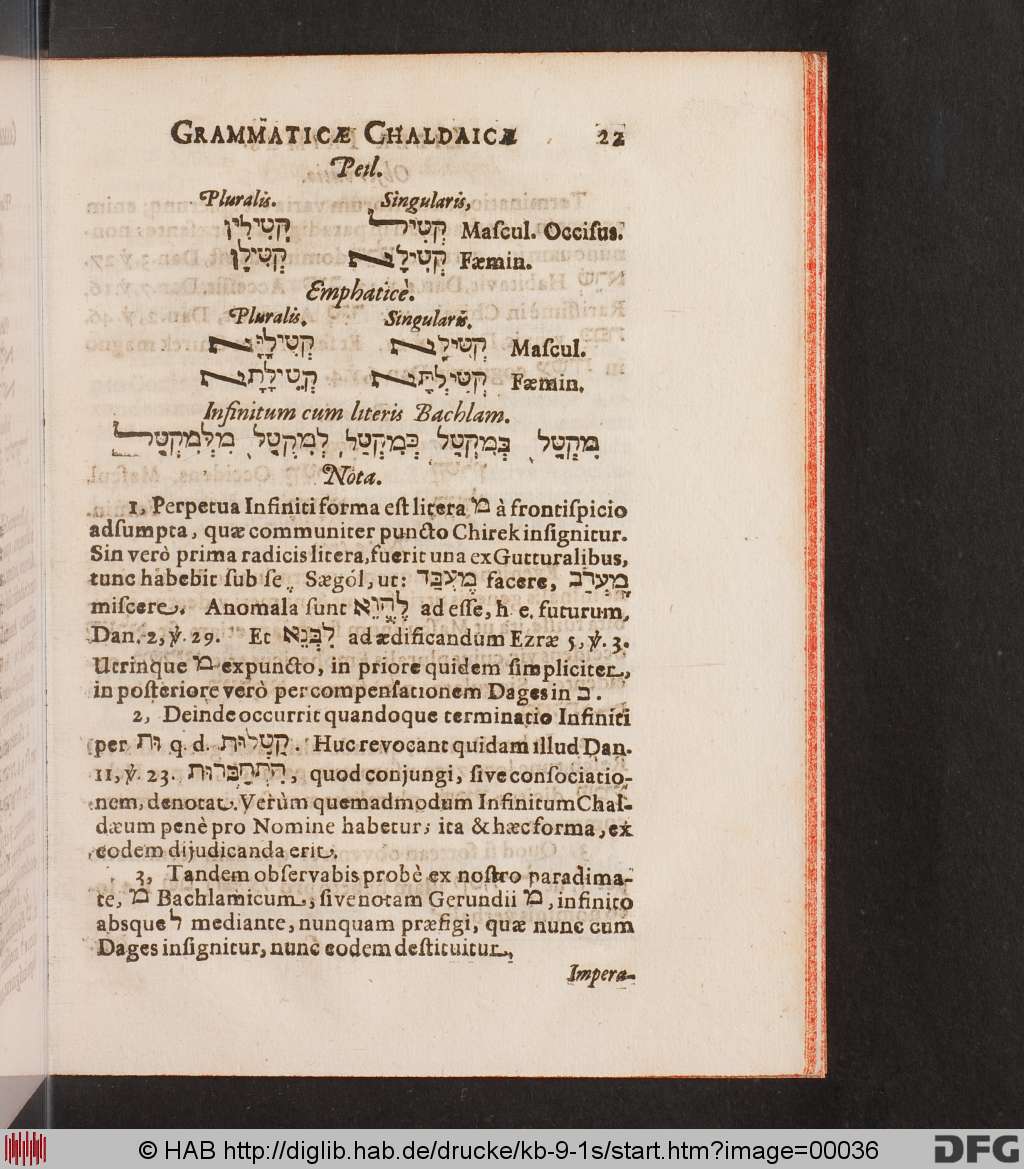 GRAMMATICÆ CHALDAICÆ 22
Peil.
Pluralis. Singularis,
קְטִילִין קְטִיל Maſcul. Occiſus.
קְטִילָן קְטִילָא Fæmin.
Emphaticè.
Pluralis. Singularis.
קְטִילַיָּא קְטִילָא Maſcul.
קְטִילָתָא קְטִילְתָּא Fæmin.
Infinitum cum literis Bachlam.
מִקְטַל בְּמִקְטַל כְּמִקְטַל לְמִקְטַל מִלְּמִקְטַל
Nota.
1, Perpetua Infiniti forma eſt litera מ à frontiſpicio
adſumpta, quæ communiter puncto Chirek inſignitur.
Sin verò prima radicis litera, fuerit una ex Gutturalibus,
tunc habebit ſub ſe Sægól, ut: מֶעְבַּד facere, מֶעְרַב
miſcere. Anomala ſunt לֶהֱוֵא ad eſſe, h. e. futurum,
Dan. 2, ꝟ. 29. Et לִבְּנֵא ad ædificandum Ezræ 5, ꝟ. 3.
Utrinque מ expuncto, in priore quidem ſimpliciter,
in poſteriore verò per compenſationem Dages in ב.
2, Deinde occurrit quandoque terminatio Infiniti
per וּת q. d. קַטָּלוּת. Huc revocant quidam illud Dan.
11, ꝟ. 23. הִתְחַבְּרוּת, quod conjungi, ſive conſociatio-
nem, denotat. Verùm quemadmodum Infinitum Chal-
dæum penè pro Nomine habetur; ita & hæc forma, ex
eodem dijudicanda erit.
3, Tandem obſervabis probè ex noſtro paradima-
te, מ Bachlamicum, ſive notam Gerundii מ, infinito
absque ל mediante, nunquam præfigi, quæ nunc cum
Dages inſignitur, nunc eodem deſtituitur,
Impera-
© HAB http://diglib.hab.de/drucke/kb-9-1s/start.htm?image=00036 DFG